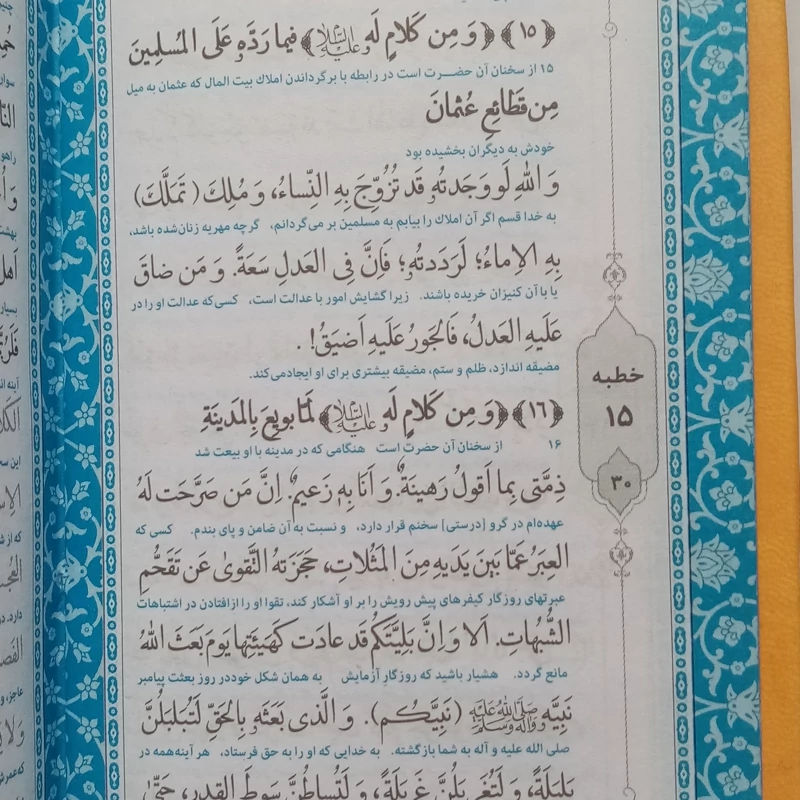 ﴿۱۵﴾ ﴿وَ مِن کَلامٍ لَه علیه‌السلام﴾ فیما رَدَّه عَلَی المُسلِمینَ
۱۵ از سخنان آن حضرت است در رابطه با برگرداندن املاک بیت المال که عثمان به میل
مِن قَطائِعِ عُثمانَ
خودش به دیگران بخشیده بود
وَ اللهِ لَو وَجَدتُه قَد تُزُوِّجَ بِهِ النِّساءُ، وَ مُلِكَ (تَمَلَّكَ)
به خدا قسم اگر آن املاک را بیابم به مسلمین بر می‌گردانم، گرچه مهریه زنان‌شده باشد،
بِهِ الإماءُ؛ لَرَدَدتُه؛ فَإنَّ فِی العَدلِ سَعَةً. وَ مَن ضاقَ
یا با آن کنیزان خریده باشند. زیرا گشایش امور با عدالت است، کسی‌که عدالت او را در
عَلَیهِ العَدلُ، فَالجَورُ عَلَیهِ أضیَقُ! .
مضیقه اندازد، ظلم و ستم، مضیقه بیشتری برای او ایجادمی‌کند.
﴿۱۶﴾ ﴿وَ مِن کَلامٍ لَه علیه‌السلام﴾ لَمّا بویِعَ بِالمَدینَةِ
۱۶ از سخنان آن حضرت است هنگامی که در مدینه با او بیعت شد
ذِمَّتی بِما أقولُ رَهینَةٌ. وَ أنَا بِه زَعیمٌ. إنَّ مَن صَرَّحَت لَهُ
عهده‌ام در گرو [درستی] سخنم قرار دارد، و نسبت به آن ضامن و پای بندم. کسی که
العِبَرُ عَمّا بَینَ یَدَیهِ مِنَ المَثُلاتِ، حَجَزَتهُ التَّقوىٰ عَن تَقَحُّمِ
عبرتهای روزگار کیفرهای پیش رویش را بر او آشکار کند، تقوا او را ازافتادن در اشتباهات
الشُّبُهاتِ. ألا وَ إنَّ بَلِیَّتَکُم قَد عادَت کَهَیئَتِها یَومَ بَعَثَ اللهُ
مانع گردد. هشیار باشید که روزگار آزمایش به همان شکل خوددر روز بعثت پیامبر
نَبِیَّه صلی‌الله‌علیه‌وآله‌وسلم (نَبِیَّکُم). وَ الَّذی بَعَثَه بِالحَقِّ لَتُبَلبَلُنَّ
صلی الله علیه و آله به شما باز گشته. به خدایی که او را به حق فرستاد، هر آینه‌همه در
بَلبَلَةً، وَ لَتُغَربَلُنَّ غَربَلَةً، وَ لَتُساطُنَّ سَوطَ القِدرِ، حَتّىٰ
خطبه
۱۵
۳۰